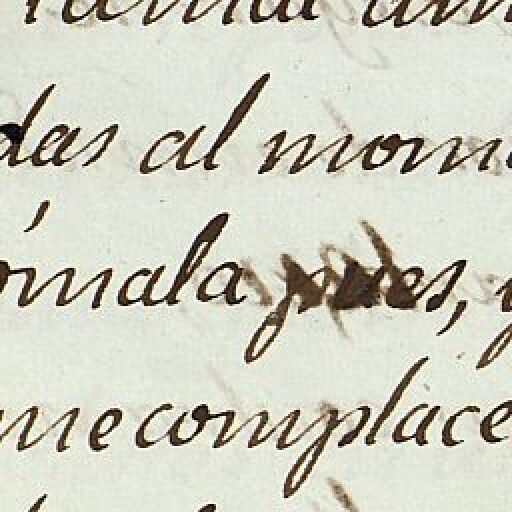 das al mom
ómala pues, y
me complace